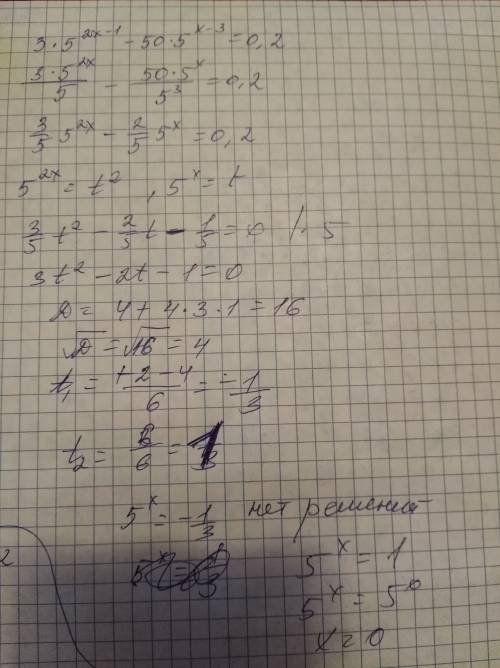 3·5^(2x-1) - 50·5^(x-3) = 0,2
3·5^(2x)/5 - 50·5^x/5^3 = 0,2
3/5 5^(2x) - 2/5 5^x = 0,2
5^(2x) = t^2 , 5^x = t
3/5 t^2 - 2/5 t - 1/5 = 0 /· 5
3t^2 - 2t - 1 = 0
D = 4 + 4·3·1 = 16
√D = √16 = 4
t₁ = (+2-4)/6 = -1/3
t₂ = 6/6 = 1
5^x = -1/3 нет решений
5^x = 1
5^x = 5^0
x = 0
2